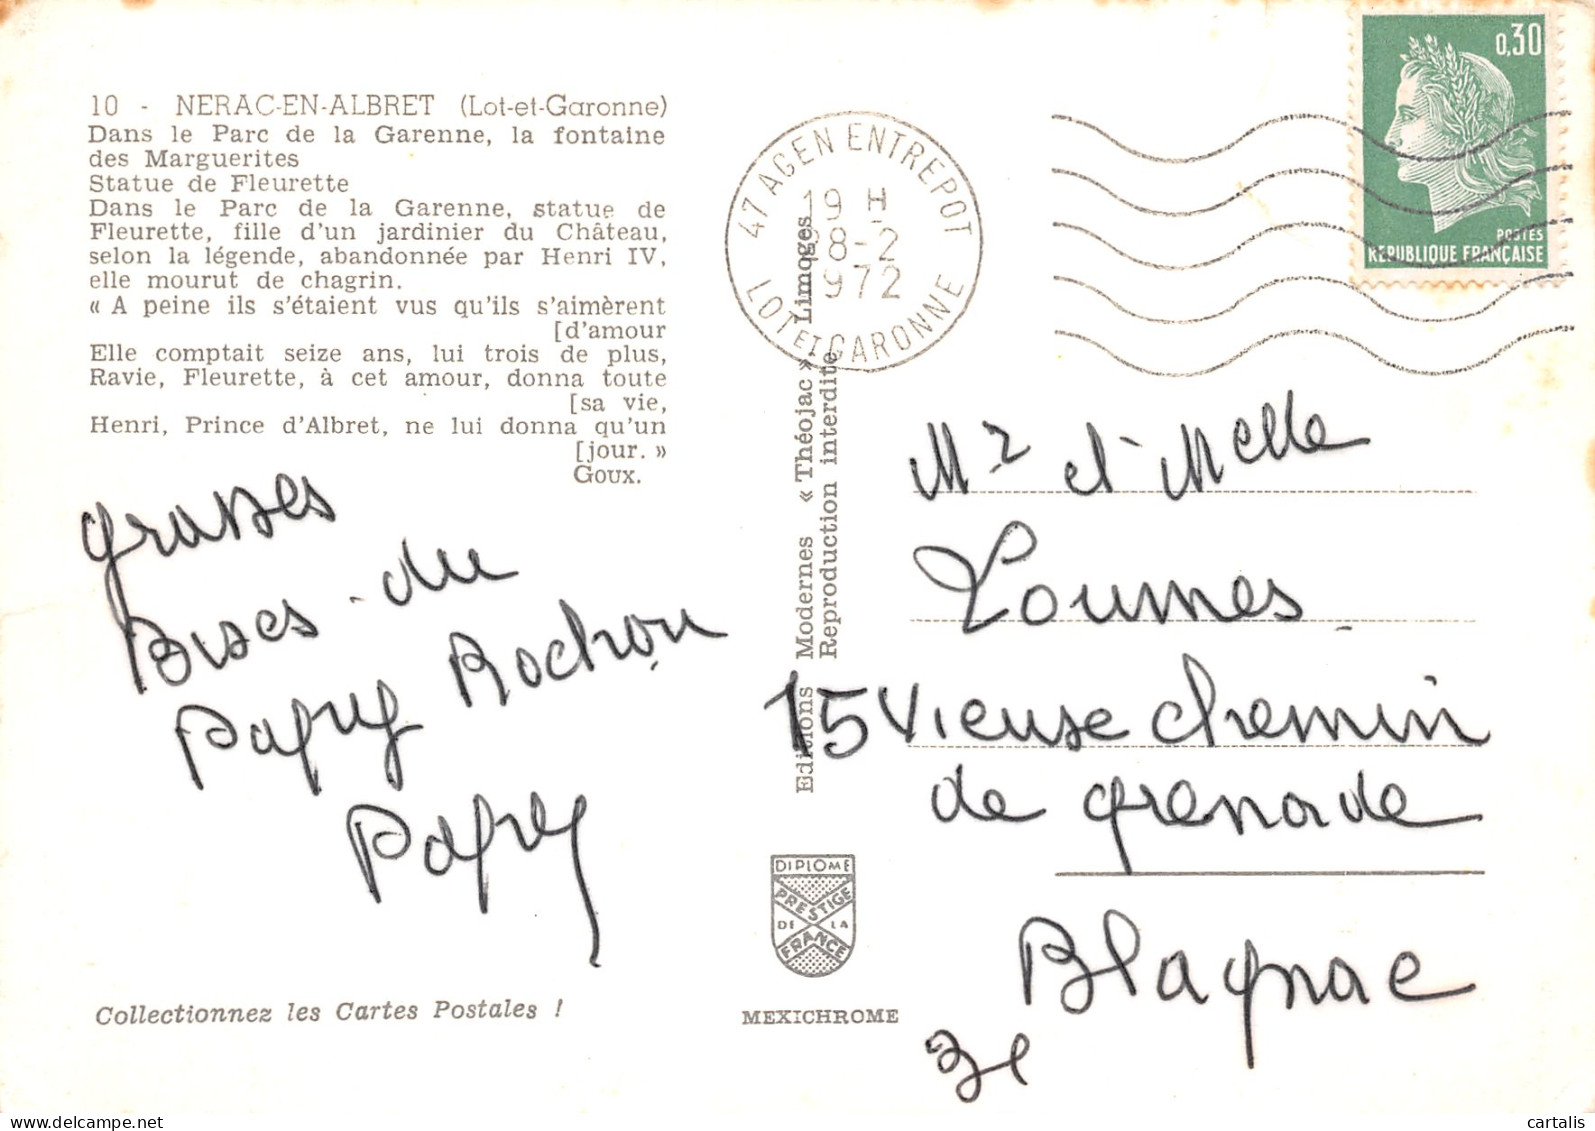 10 - NERAC-EN-ALBRET (Lot-et-Garonne)
Dans le Parc de la Garenne, la fontaine
des Marguerites
Statue de Fleurette
Dans le Parc de la Garenne, statue de
Fleurette, fille d'un jardinier du Château,
selon la légende, abandonnée par Henri IV,
elle mourut de chagrin.
« A peine ils s'étaient vus qu'ils s'aimèrent
[d'amour
Elle comptait seize ans, lui trois de plus,
Ravie, Fleurette, à cet amour, donna toute
[sa vie,
Henri, Prince d'Albret, ne lui donna qu'un
[jour. »
Goux.
grosses
Bises du
Papy Rochon
Papy
Collectionnez les Cartes Postales !
47 AGEN ENTREPOT
19 H
28-2
1972
LOT ET GARONNE
Editions Modernes « Théojac » Limoges
Reproduction interdite
DIPLOME
PRESTIGE
DE LA
FRANCE
MEXICHROME
0,30
POSTES
REPUBLIQUE FRANÇAISE
Mr et Melle
Loumes
15 Vieuse chemin
de grenade
Blagnac
31
cartalis
delcampe.net